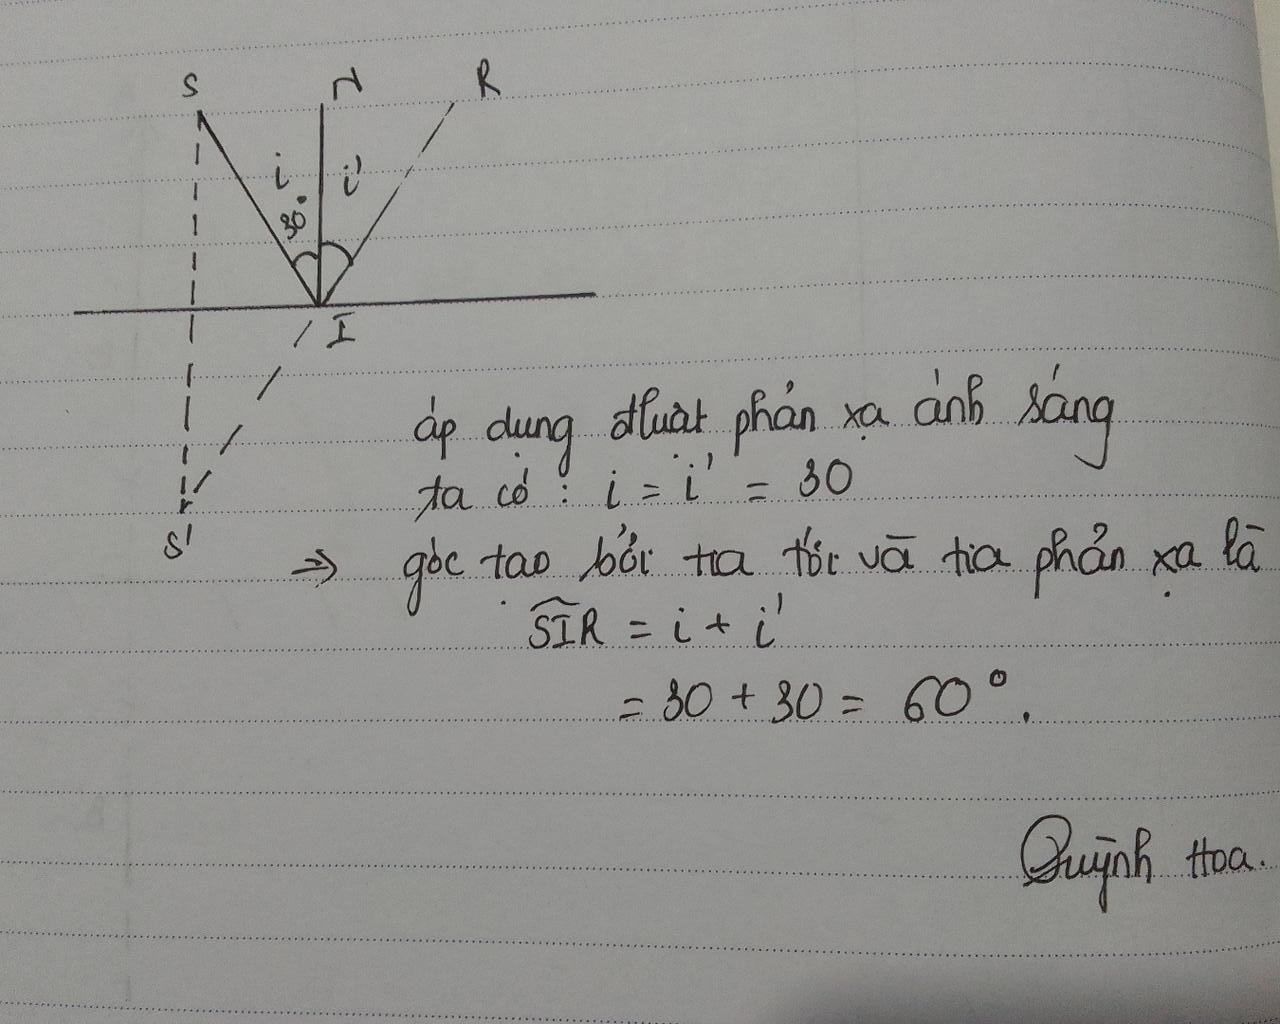 S N R
i i'
30°
I
S'
áp dụng đluật phản xạ ánh sáng
ta có : i = i' = 30
⇒ góc tạo bởi tia tới và tia phản xạ là
SIR = i + i'
= 30 + 30 = 60°.
Quỳnh Hoa.